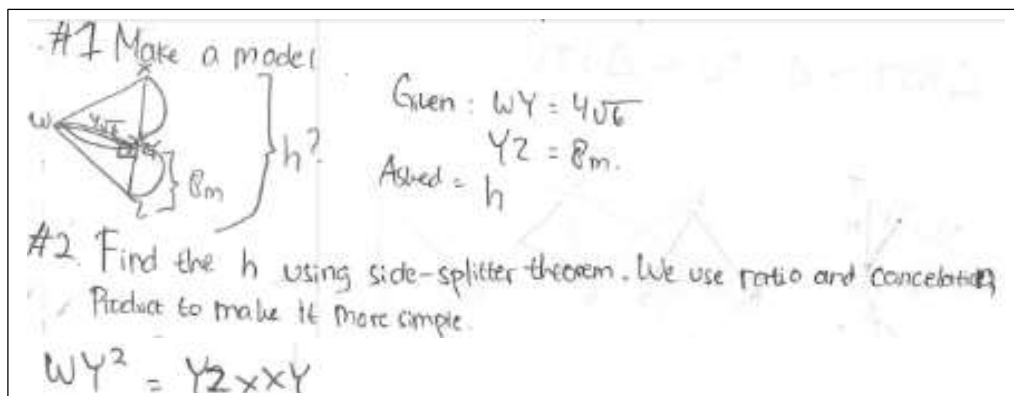 #1 Make a model
X
W
4√6
Y
8m
Z
h?
Given : WY = 4√6
YZ = 8m.
Asked = h
#2. Find the h using side-splitter theorem. We use ratio and
Product to make it more simple.
WY² = YZ x XY